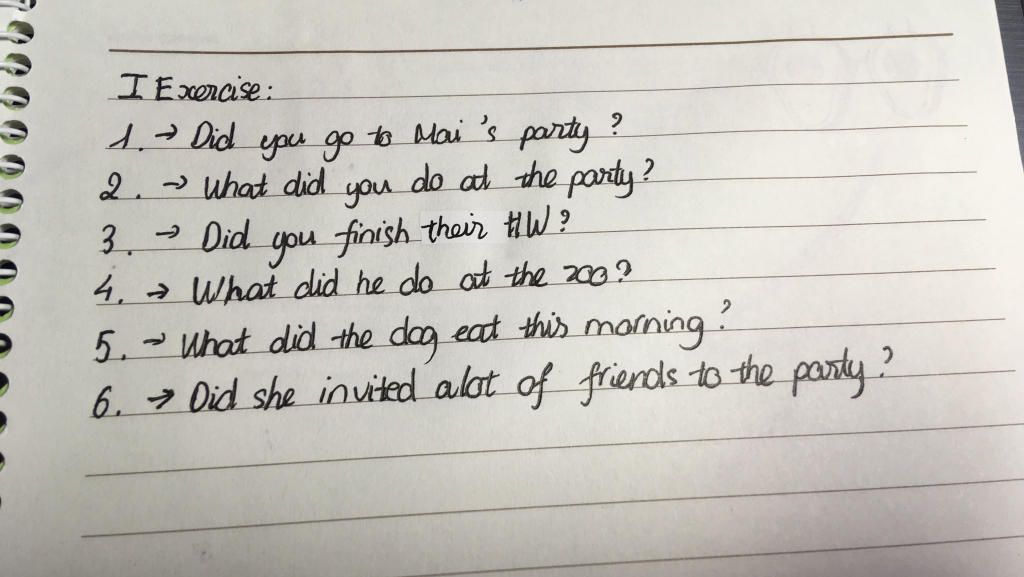 I Exercise:
1. → Did you go to Mai's party?
2. → What did you do at the party?
3. → Did you finish their HW?
4. → What did he do at the zoo?
5. → What did the dog eat this morning?
6. → Did she invited alot of friends to the party?